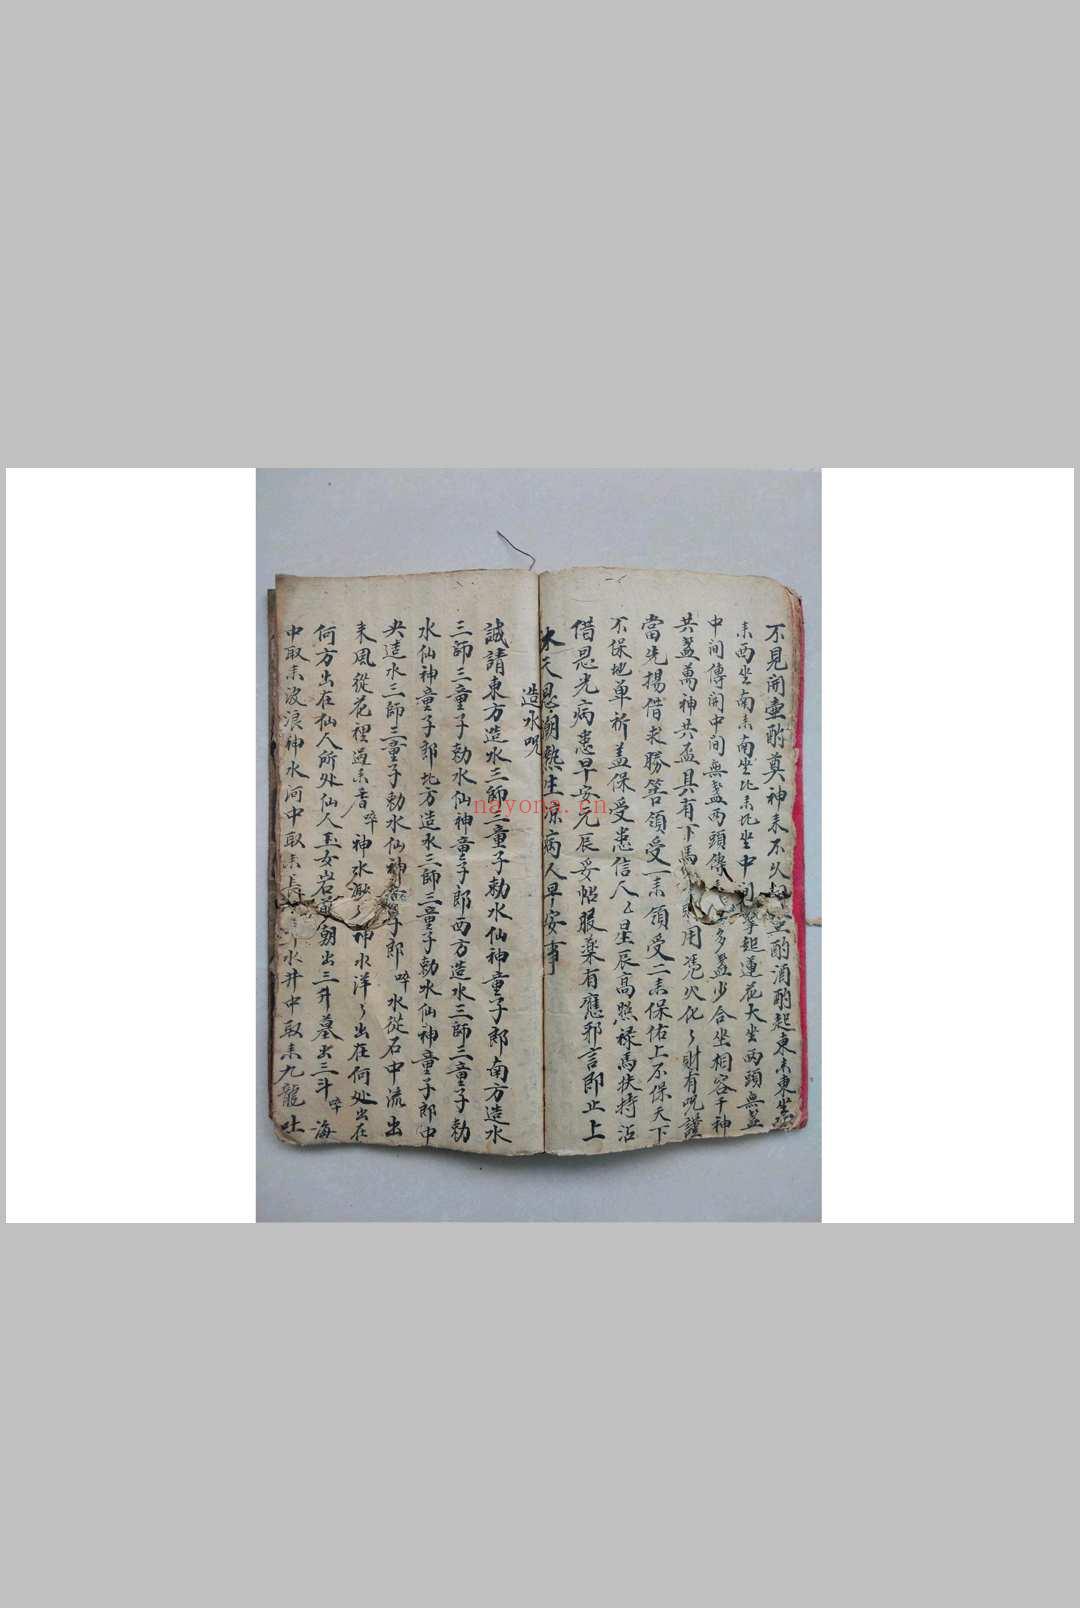 不見開壺酌奠神耒不火壺酌酒酌起東耒東坐
耒西坐南耒南坐北耒北坐中間擎起蓮花大坐兩頭無盞
中间傳開中间無盞兩頭傳多盞少合坐相容千神
共盞萬神共盃具有下馬財用凭火化〻財有呪謹
當先揚借求勝筶領受一耒領受二耒保佑上不保天下
不保地单祈盖保受患信人乙星辰高照禄馬扶持沾
借恩光病患早安元辰妥帖服藥有應邪言即止上
木天恩朝熱生凉病人早安事
造水呪
誠請東方造水三師三童子勅水仙神童子郎南方造水
三師三童子勅水仙神童子郎西方造水三師三童子勅
水仙神童子郎北方造水三師三童子勅水仙神童子郎中
央造水三師三童子勅水仙神童子郎啐水從石中流出
耒風從花裡過耒香啐神水渺〻神水洋〻出在何处出在
何方出在仙人所处仙人玉女岩前朝出三升墓出三斗啐海
中取耒波浪神水河中取耒長水井中取耒九龍吐
nayona.cn